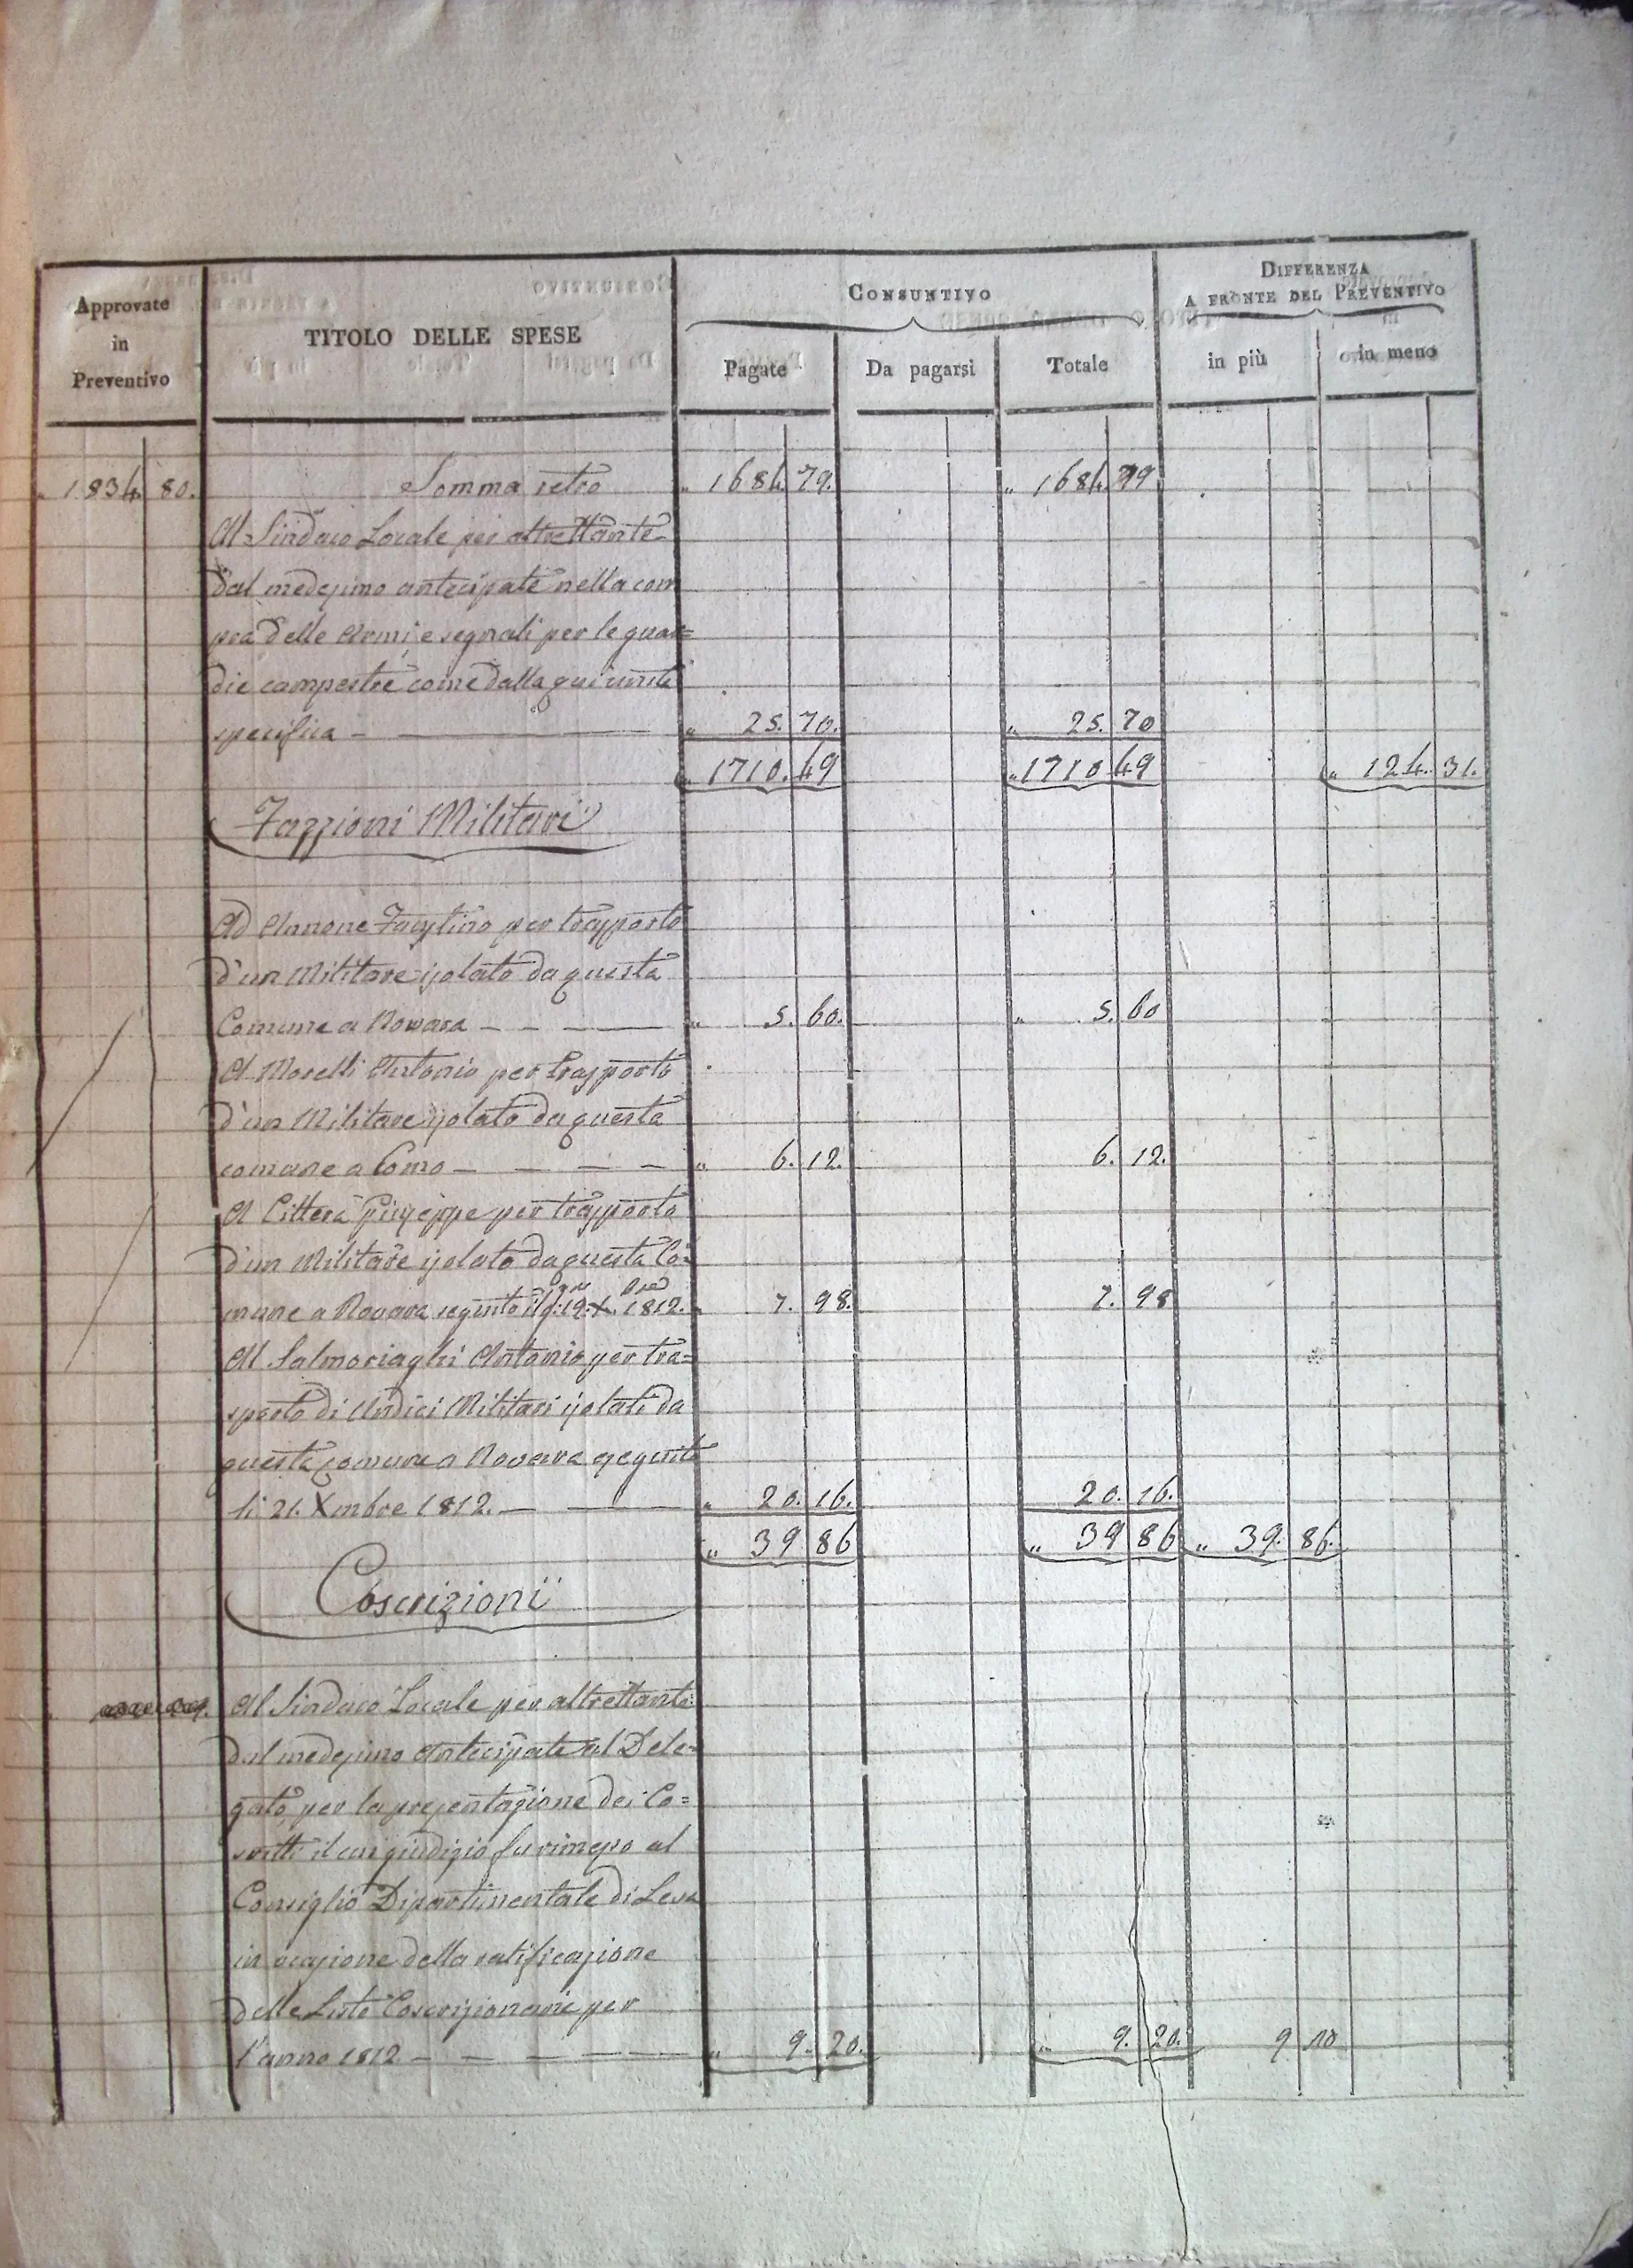 Approvate
in
Preventivo
TITOLO DELLE SPESE
Consuntivo
Pagate
Da pagarsi
Totale
Differenza
a fronte del Preventivo
in più
in meno
1834 80. Somma retro " 1684. 79. " 1684. 79
Al Sindaco Locale per altrettante
dal medesimo antecipate nella com
pra delle Armi, e segnali per le guar=
die campestre come dalla qui unita
specifica — " 25. 70. " 25. 70
" 1710. 49 " 1710 49 " 124. 31.
Fazzioni Militari
Ad Annone Faustino per trasporto
d'un Militare isolato da questa
Comune a Novara — " 5. 60. " 5. 60
A Morelli Antonio per trasporto
d'un Militare isolato da questa
comune a Como — " 6. 12. 6. 12.
A Citterà Giuseppe per trasporto
d'un Militare isolato da questa Co=
mune a Novara seguito il 19 1812. " 7. 98. 7. 98
Al Salmoriaghi Antonio per tra=
sporto di Undici Militari isolati da
questa comune a Novara eseguito
li 21. Xmbre 1812. — " 20. 16. 20. 16.
" 39 86 " 39 86 " 39. 86.
Coscrizioni
Al Sindaco Locale per altrettante
dal medesimo Antecipate al Dele=
gato, per la presentazione dei Co=
scritti il cui giudizio fu rimesso al
Consiglio Dipartimentale di Leva
in ocasione della ratificazione
delle Liste Coscrizionarie per
l'anno 1812 — " 9. 20. " 9. 20. 9